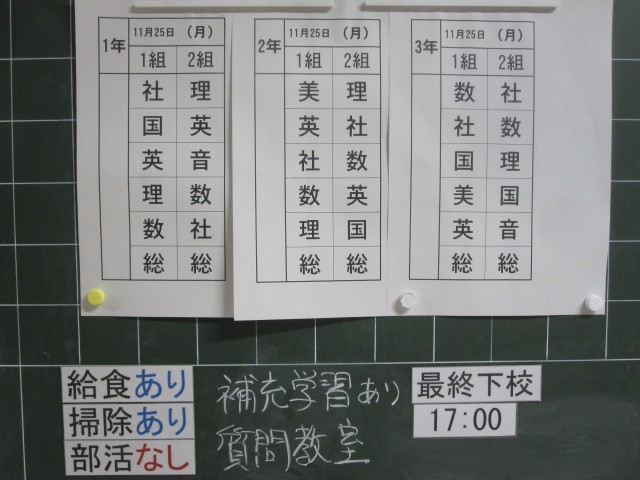 1年 11月25日 （月）
1組 2組
社 理
国 英
英 音
理 数
数 社
総 総
2年 11月25日 （月）
1組 2組
美 理
英 社
社 数
数 英
理 国
総 総
3年 11月25日 （月）
1組 2組
数 社
社 数
国 理
美 国
英 音
総 総
給食あり
掃除あり
部活なし
補充学習あり
質問教室
最終下校
17:00